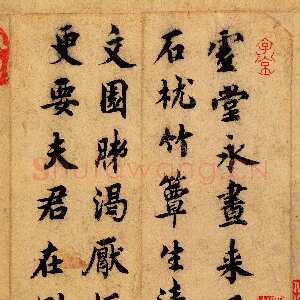 虛堂永晝来
石枕竹簟生清
文園肺渴厭
更要夫君在
Shufawang.CN